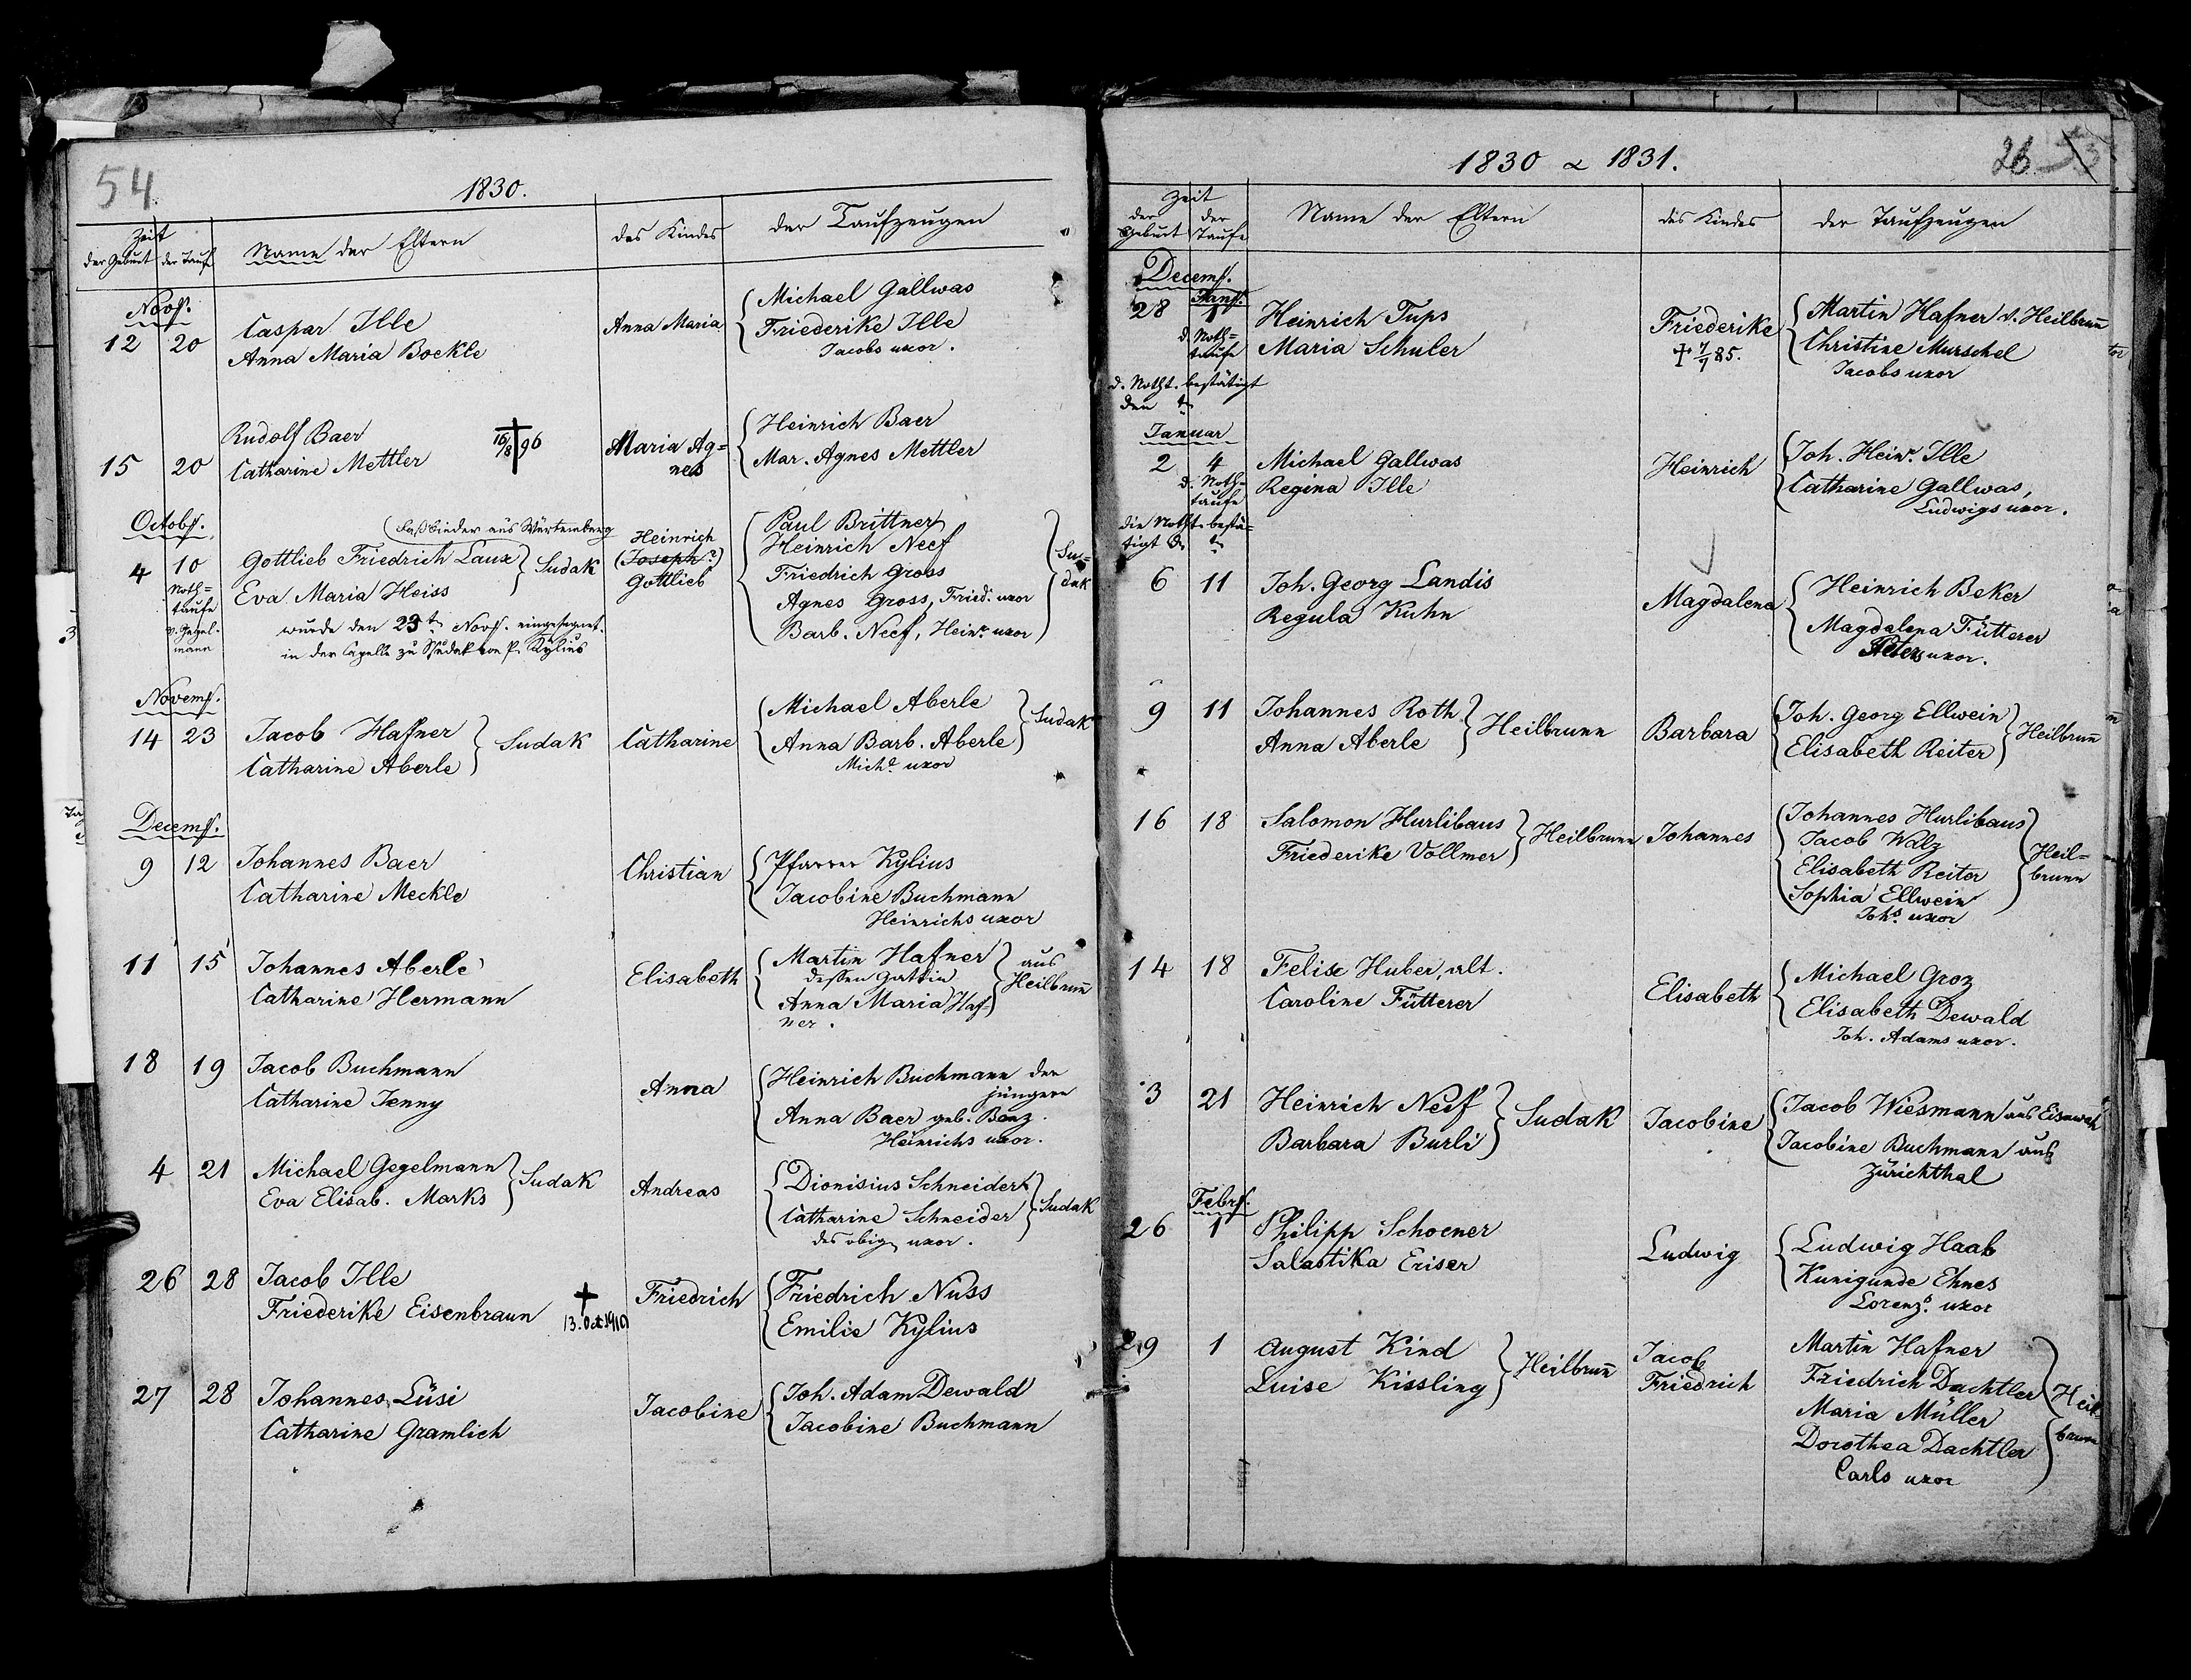 54.
1830.
Zeit
der Geburt der Taufe
Name der Eltern
des Kindes
der Taufzeugen
Novbr.
12 20
Caspar Ille
Anna Maria Boekle
Anna Maria
Michael Gallwas
Friederike Ille
Jacobs uxor.
15 20
Rudolf Baer
Catharine Mettler
16/8 † 96
Maria Ag=
nes
Heinrich Baer
Mar. Agnes Mettler
Octobr.
4 10
Noth=
taufe
v. Gegel-
mann
(Faßbinder aus Würtemberg
Gottlieb Friedrich Laux
Eva Maria Heiss
Sudak
wurde den 23t Novbr. eingesegnet.
in der Capelle zu Sudak von P. Kylius
Heinrich
(Joseph?)
Gottlieb
Paul Brittner
Heinrich Neef
Friedrich Gross
Agnes Gross, Fried. uxor
Barb. Neef, Heinr. uxor
Su=
dak
Novembr.
14 23
Jacob Hafner
Catharine Aberle
Sudak
Catharine
Michael Aberle
Anna Barb. Aberle
Michl. uxor
Sudak
Decembr.
9 12
Johannes Baer
Catharine Meckle
Christian
Pfarrer Kylius
Jacobine Buchmann
Heinrichs uxor
11 15
Johannes Aberle
Catharine Hermann
Elisabeth
Martin Hafner
dessen Gattin
Anna Maria Haf=
ner.
aus
Heilbrun̄
18 19
Jacob Buchmann
Catharine Jenny
Anna
Heinrich Buchmann der
jüngere
Anna Baer geb. Benz.
Heinrichs uxor.
4 21
Michael Gegelmann
Eva Elisab. Marks
Sudak
Andreas
Dionisius Schneider
Catharine Schneider
des obign uxor.
Sudak
26 28
Jacob Ille
Friederike Eisenbraun
†
13. Oct 1910
Friedrich
Friedrich Nuss
Emilie Kylius
27 28
Johannes Lüsi
Catharine Gramlich
Jacobine
Joh. Adam Dewald
Jacobine Buchmann
1830 & 1831.
26
Zeit
der Geburt
der Taufe
Name der Eltern
des Kindes
der Taufzeugen
Decembr.
28
Janr.
1
d. Noth=
taufe
Heinrich Tups
Maria Schuler
Friederike
† 7/7 85.
Martin Hafner v. Heilbrun̄
Christine Murschel
Jacobs uxor
d. Notht. bestätigt
den
Januar
2 4
d. Noth=
taufe
Michael Gallwas
Regina Ille
Heinrich
Joh. Heinr. Ille
Catharine Gallwas,
Ludwigs uxor.
die Notht. bestä=
tigt d.
6 11
Joh. Georg Landis
Regula Kuhn
Magdalena
Heinrich Beker
Magdalena Fütterer
Peters uxor.
9 11
Johannes Roth
Anna Aberle
Heilbrunn
Barbara
Joh. Georg Ellwein
Elisabeth Reiter
Heilbrun̄
16 18
Salomon Hurlibaus
Friederike Vollmer
Heilbrunn
Johannes
Johannes Hurlibaus
Jacob Walz
Elisabeth Reiter
Sophia Ellwein
Johs. uxor
Heil=
brunn
14 18
Felix Huber, alt.
Caroline Fütterer
Elisabeth
Michael Groz
Elisabeth Dewald
Joh. Adams uxor.
3 21
Heinrich Neef
Barbara Burli
Sudak
Jacobine
Jacob Wiesmann aus
Jacobine Buchmann aus
Zürichthal
Febr.
26 1
Philipp Schoener
Salastika Eriser
Ludwig
Ludwig Haab
Kunigunde Ehnes
Lorenzs. uxor
29 1
August Kind
Luise Kissling
Heilbrun̄
Jacob
Friedrich
Martin Hafner
Friedrich Dachtler
Maria Müller
Dorothea Dachtler
Carls uxor
Heil
brunn